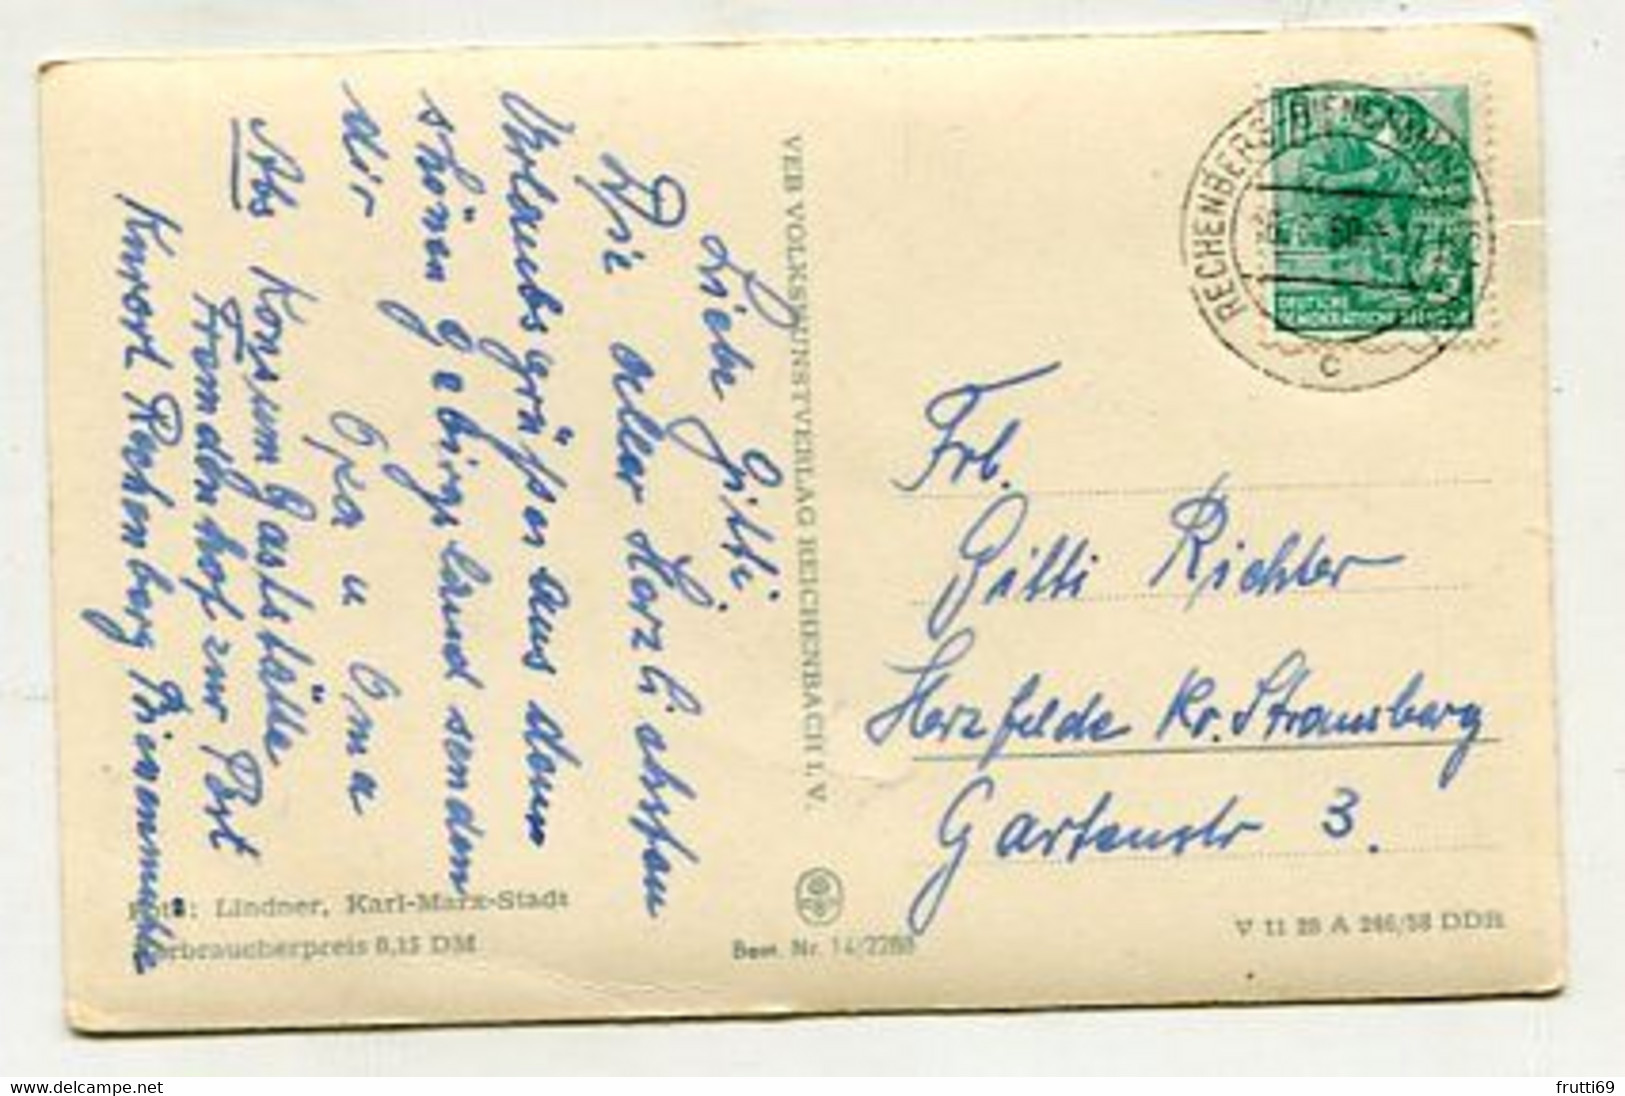 Liebe Gitti,
Die aller Herzlichsten
Urlaubsgrüße aus dem
schönen Gebirgsland senden
dir
Opa u Oma
Abs Konsum Gaststätte
Fremdenhof zur Post
Kurort Rechenberg Bienenmühle
VEB VOLKSKUNSTVERLAG REICHENBACH I. V.
Foto: Lindner, Karl-Marx-Stadt
Verbraucherpreis 0,15 DM
Best. Nr. 14/2288
RECHENBERG-BIENENMÜHLE
c
DEUTSCHE
DEMOKRATISCHE REPUBLIK
Frl.
Gitti Richter
Herzfelde Kr. Strausberg
Gartenstr 3.
V 11 28 A 246/58 DDR
www.delcampe.net
frutti69